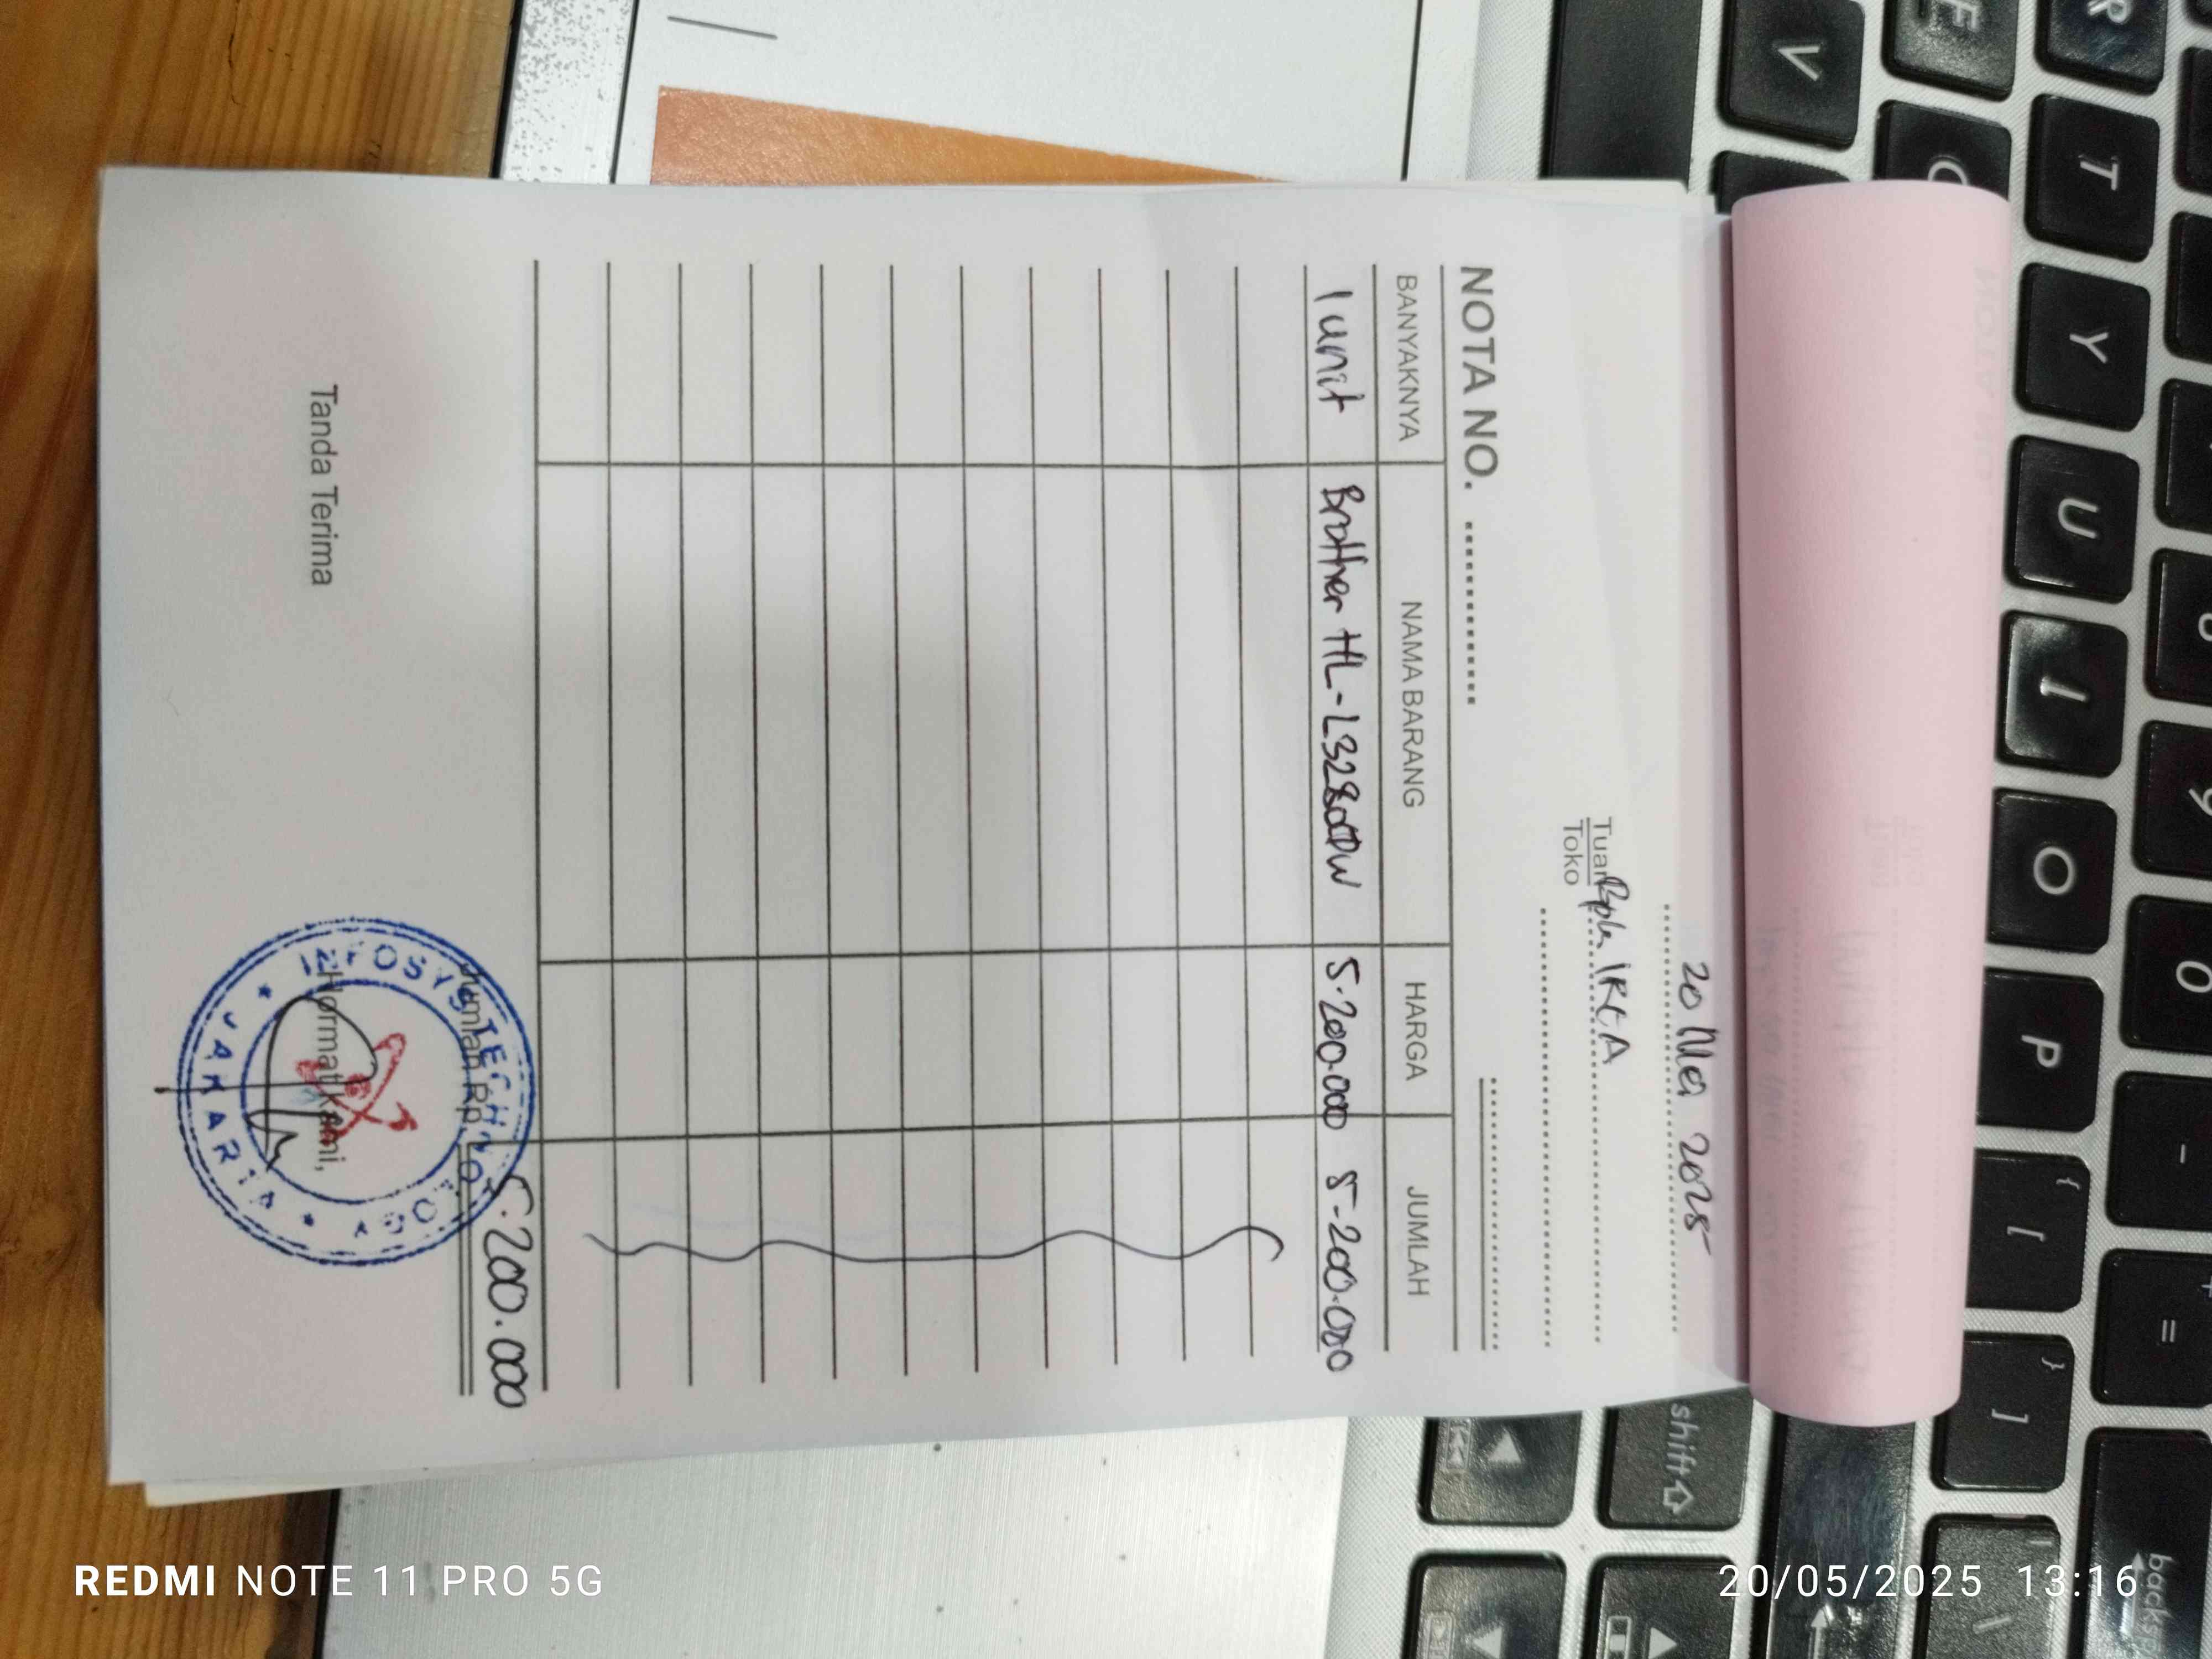 20 Mei 2025
Tuan Bpk IRCA
Toko
NOTA NO.
BANYAKNYA NAMA BARANG HARGA JUMLAH
1 unit Brother HL-L3280CDW 5.200.000 5.200.000
Jumlah Rp. 5.200.000
Tanda Terima Hormat Kami,
INFOSYS TECHNOLOGY
JAKARTA
V F R
C T
Y
U
I 9
O 0
P -
{ [ + =
} ]
shift backsp
REDMI NOTE 11 PRO 5G
20/05/2025 13:16